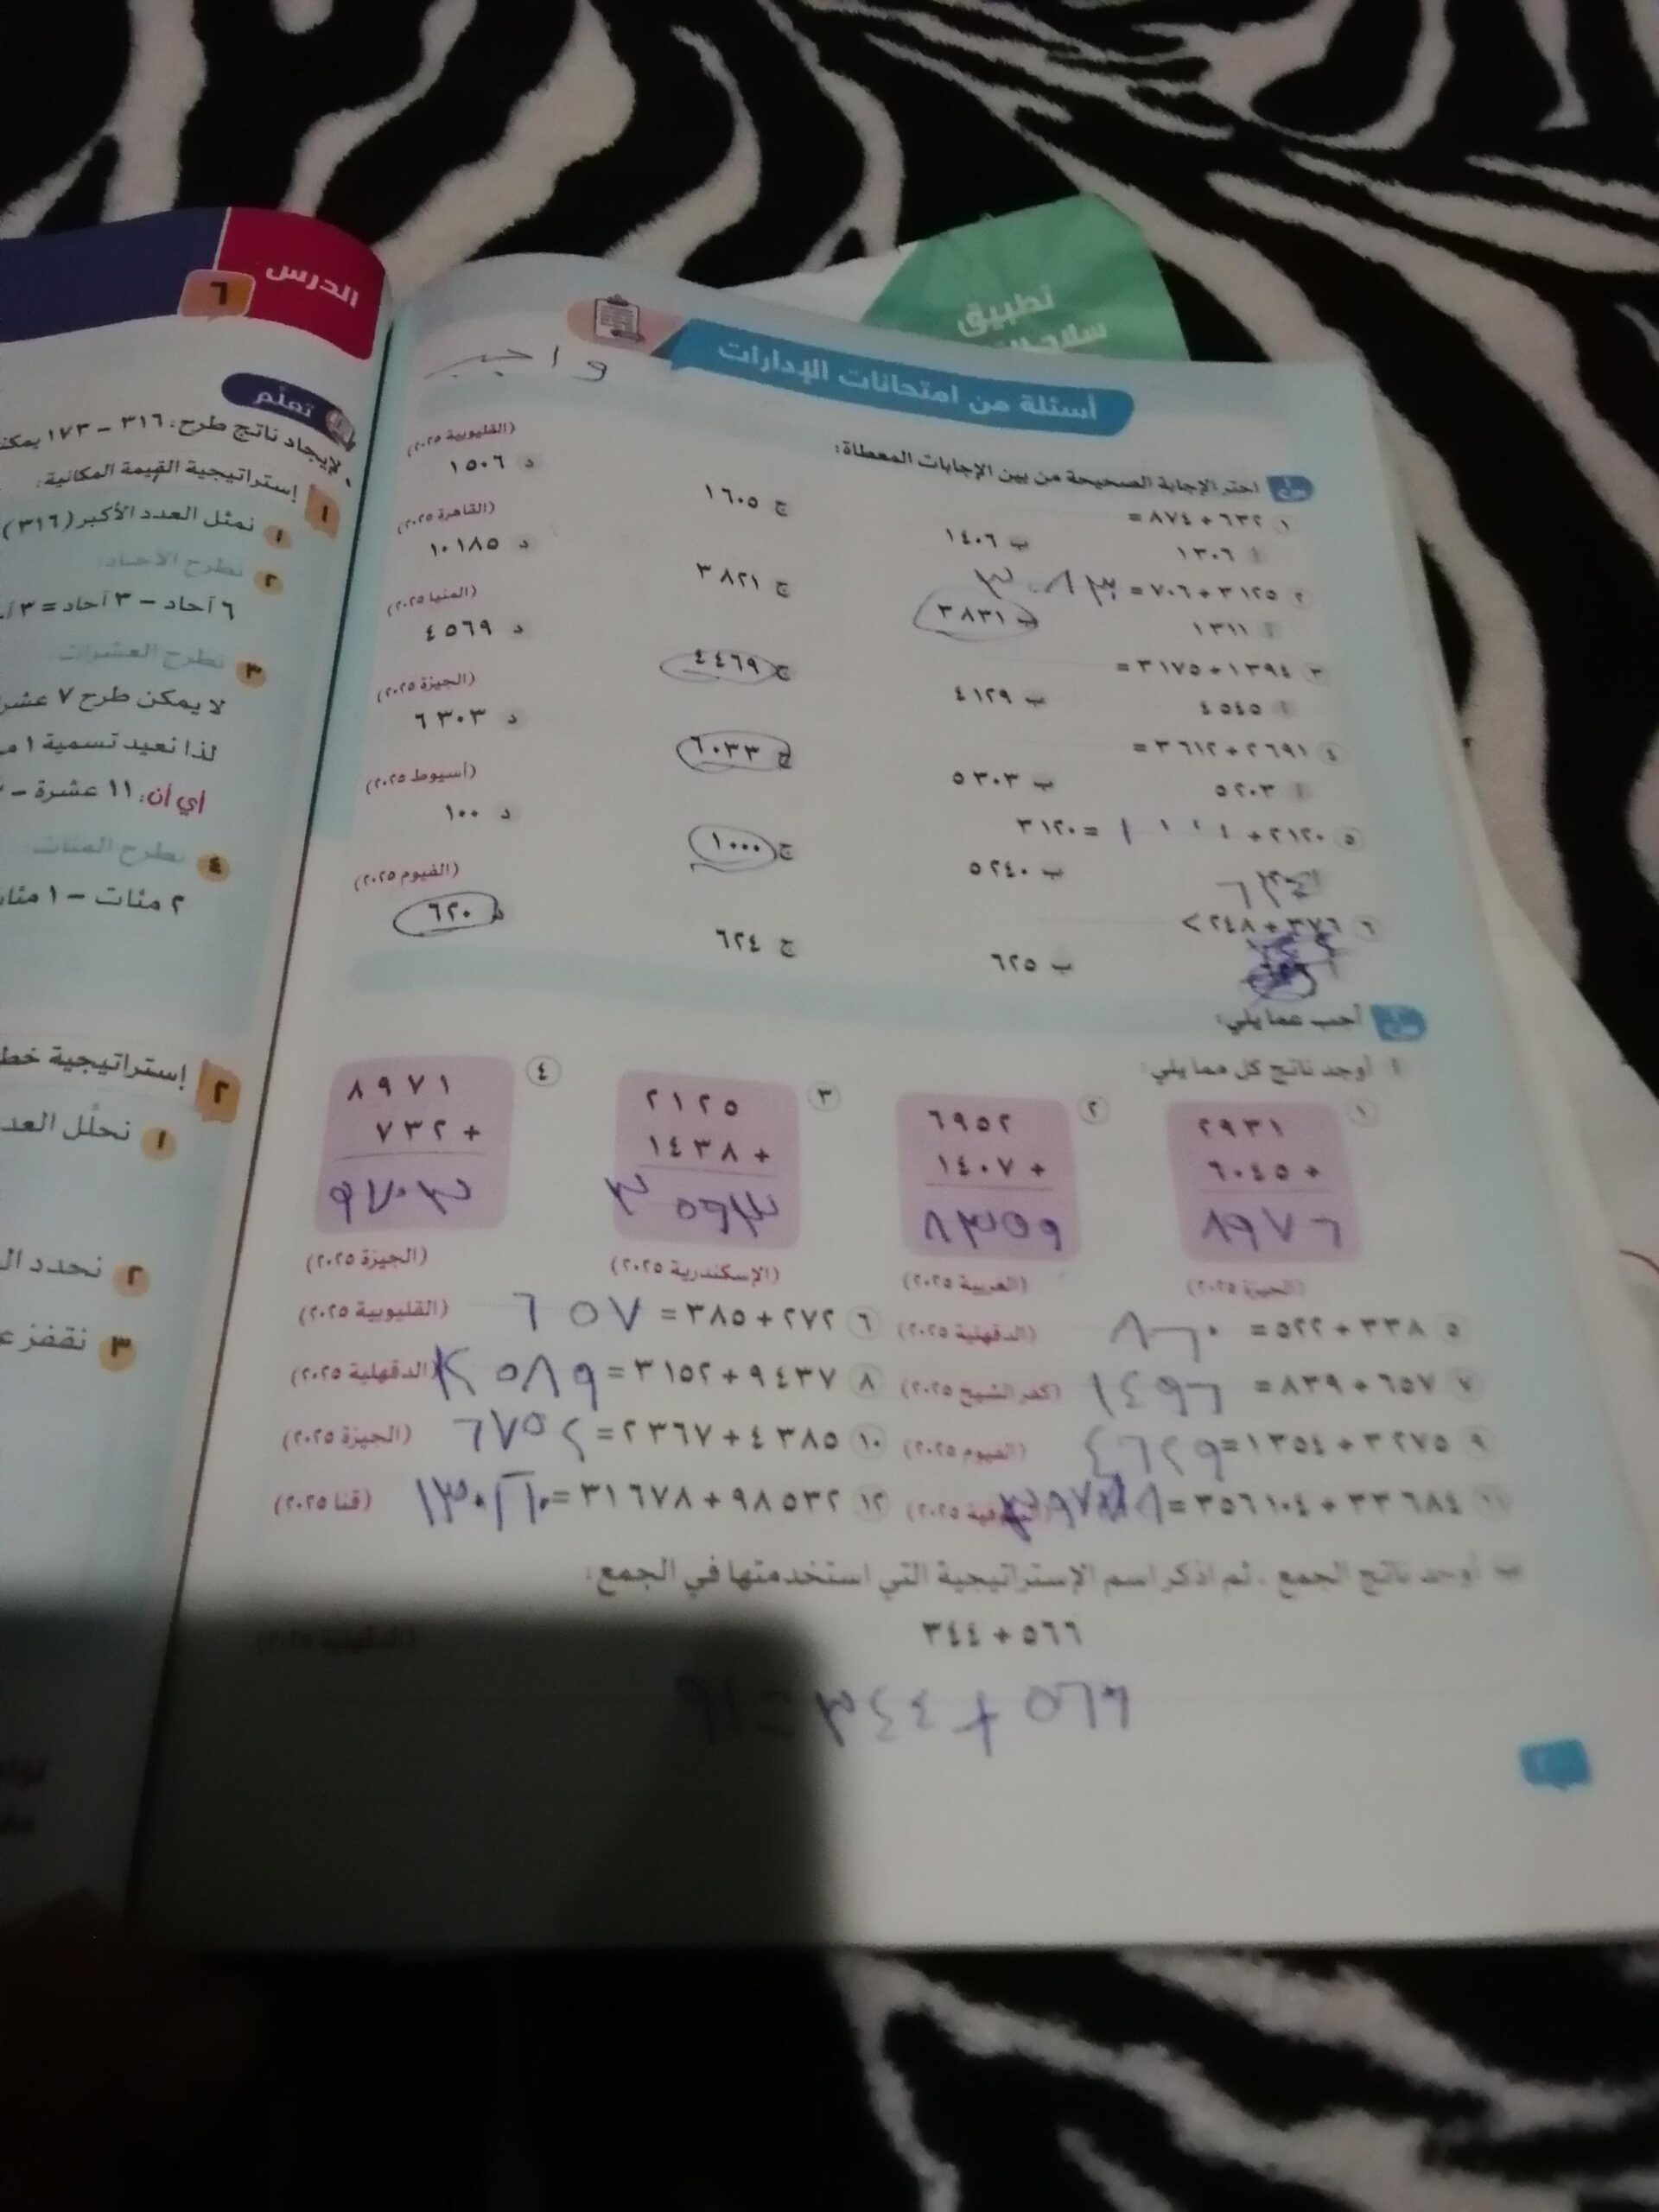 تطبيق
أسئلة من امتحانات الإدارات
واجب
اختر الإجابة الصحيحة من بين الإجابات المعطاة:
١ ٦٣٢ + ٨٧٤ =
(القليوبية ٢٠٢٥)
أ ١٣٠٦ ب ١٤٠٦ ج ١٦٠٥ د ١٥٠٦
٢ ٣١٢٥ + ٧٠٦ =
(القاهرة ٢٠٢٥)
أ ١٣١١ ب ٣٨٣١ ج ٣٨٢١ د ١٠١٨٥
٣ ١٣٩٤ + ٣١٧٥ =
(المنيا ٢٠٢٥)
أ ٤٥٤٥ ب ٤١٢٩ ج ٤٤٦٩ د ٤٥٦٩
٤ ٢٦٩١ + ٣٦١٢ =
(الجيزة ٢٠٢٥)
أ ٥٢٠٣ ب ٥٣٠٣ ج ٦٠٣٣ د ٦٣٠٣
٥ ٢١٢٠ + = ٣١٢٠
(أسيوط ٢٠٢٥)
ب ٥٢٤٠ ج ١٠٠٠ د ١٠٠
٦ ٣٧٦ + ٢٤٨ >
(الفيوم ٢٠٢٥)
ب ٦٢٥ ج ٦٢٤ د ٦٢٠
أجب عما يلي:
أ أوجد ناتج كل مما يلي:
١ ٢ ٣ ٤
٢٩٣١ ٦٩٥٢ ٢١٢٥ ٨٩٧١
٦٠٤٥ + ١٤٠٧ + ١٤٣٨ + ٧٣٢ +
٨٩٧٦ ٨٣٥٩ ٣٥٦٣ ٩٧٠٣
(الجيزة ٢٠٢٥) (الغربية ٢٠٢٥) (الإسكندرية ٢٠٢٥) (الجيزة ٢٠٢٥)
٥ ٣٣٨ + ٥٢٢ = ٨٦٠ (الدقهلية ٢٠٢٥) ٦ ٢٧٢ + ٣٨٥ = ٦٥٧ (القليوبية ٢٠٢٥)
٧ ٦٥٧ + ٨٣٩ = ١٤٩٦ (كفر الشيخ ٢٠٢٥) ٨ ٩٤٣٧ + ٣١٥٢ = (الدقهلية ٢٠٢٥)
٩ ٣٢٧٥ + ١٣٥٤ = ٤٦٢٩ (الفيوم ٢٠٢٥) ١٠ ٤٣٨٥ + ٢٣٦٧ = ٦٧٥٢ (الجيزة ٢٠٢٥)
١١ ٣٣٦٨٤ + ٣٥٦١٠٤ = ١٢ ٩٨٥٣٢ + ٣١٦٧٨ = (قنا ٢٠٢٥)
ب أوجد ناتج الجمع، ثم اذكر اسم الإستراتيجية التي استخدمتها في الجمع:
٥٦٦ + ٣٤٤
(الدقهلية ٢٠٢٥)
الدرس
٦
تعلم
لإيجاد ناتج طرح: ٣١٦ – ١٧٣
١ إستراتيجية القيمة المكانية:
١ نمثل العدد الأكبر (٣١٦)
٢ نطرح الآحاد:
٦ آحاد – ٣ آحاد = ٣
٣ نطرح العشرات:
لا يمكن طرح ٧
لذا نعيد تسمية ١
أي أن: ١١ عشرة –
٤ نطرح المئات:
٢ مئات – ١
٢ إستراتيجية
١ نحلل
٢ نحدد
٣ نقفز